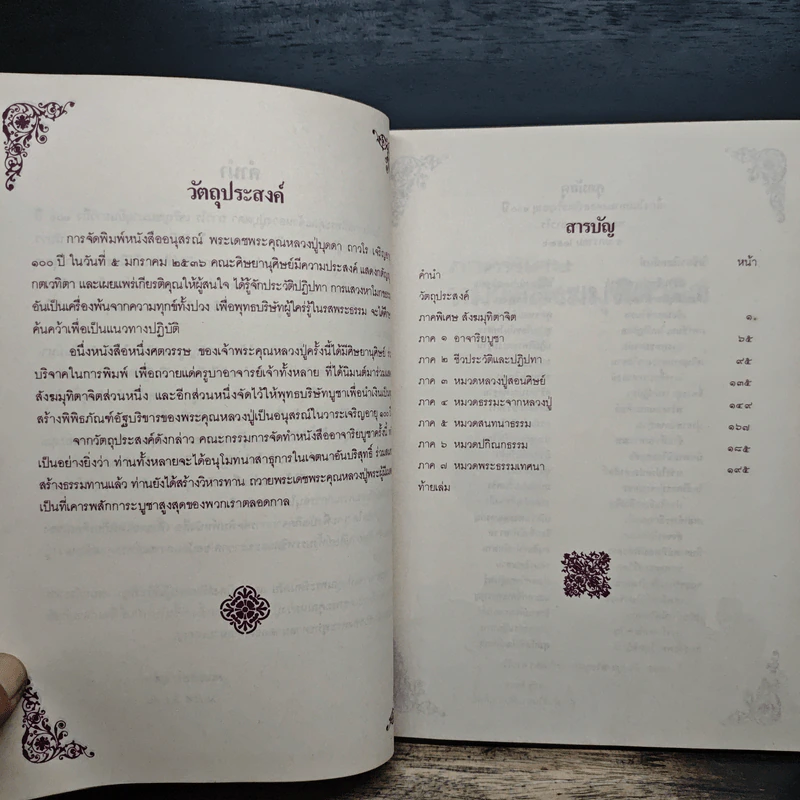 วัตถุประสงค์
การจัดพิมพ์หนังสืออนุสรณ์ พระเดชพระคุณหลวงปู่บุดดา ถาวโร เจริญอายุ
๑๐๐ ปี ในวันที่ ๕ มกราคม ๒๕๓๖ คณะศิษยานุศิษย์มีความประสงค์ แสดงกตัญญู
กตเวทิตา และเผยแพร่เกียรติคุณให้ผู้สนใจ ได้รู้จักประวัติปฏิปทา การแสวงหาโมกขธรรม
อันเป็นเครื่องพ้นจากความทุกข์ทั้งปวง เพื่อพุทธบริษัทผู้ใคร่รู้ในรสพระธรรม จะได้ศึกษา
ค้นคว้าเพื่อเป็นแนวทางปฏิบัติ
อนึ่งหนังสือหนึ่งศตวรรษ ของเจ้าพระคุณหลวงปู่ครั้งนี้ได้มีศิษยานุศิษย์
บริจาคในการพิมพ์ เพื่อถวายแด่ครูบาอาจารย์เจ้าทั้งหลาย ที่ได้นิมนต์มาร่วม
สังฆมุทิตาจิตส่วนหนึ่ง และอีกส่วนหนึ่งจัดไว้ให้พุทธบริษัทบูชาเพื่อนำเงินเป็น
สร้างพิพิธภัณฑ์อัฐบริขารของพระคุณหลวงปู่เป็นอนุสรณ์ในวาระเจริญอายุ ๑๐๐ ปี
จากวัตถุประสงค์ดังกล่าว คณะกรรมการจัดทำหนังสืออาจาริยบูชาครั้งนี้
เป็นอย่างยิ่งว่า ท่านทั้งหลายจะได้อนุโมทนาสาธุการในเจตนาอันบริสุทธิ์
สร้างธรรมทานแล้ว ท่านยังได้สร้างวิหารทาน ถวายพระเดชพระคุณหลวงปู่พระผู้มี
เป็นที่เคารพสักการะบูชาสูงสุดของพวกเราตลอดกาล
สารบัญ
หน้า
คำนำ
วัตถุประสงค์
ภาคพิเศษ สังฆมุทิตาจิต ๑
ภาค ๑ อาจาริยบูชา ๖๕
ภาค ๒ ชีวประวัติและปฏิปทา ๙๕
ภาค ๓ หมวดหลวงปู่สอนศิษย์ ๑๓๕
ภาค ๔ หมวดธรรมะจากหลวงปู่ ๑๔๙
ภาค ๕ หมวดสนทนาธรรม ๑๖๗
ภาค ๖ หมวดปกิณกธรรม ๑๘๕
ภาค ๗ หมวดพระธรรมเทศนา ๑๙๕
ท้ายเล่ม